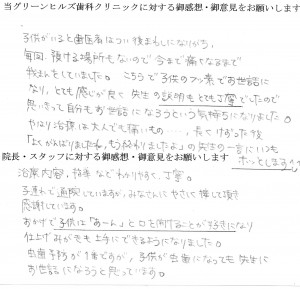 当グリーンヒルズ歯科クリニックに対する御感想・御意見をお願いします
子供がいると歯医者はつい後まわしになりがち、
毎回、預ける場所もないので今まで痛くなるまで
我まんをしていました。こちらで子供のフッ素でお世話に
なり、とても感じが良く先生の説明もとても丁寧でしたので
思いきって自分もお世話になろうという気持ちになりました。
やはり治療は大人でも痛いもの…、長くけずった後
「よくがんばりましたね、もう終わりましたよ」の先生の一言にいつも
ホッとします
院長・スタッフに対する御感想・御意見をお願いします
治療内容、指導などわかりやすく、丁寧。
子連れで通院していますが、みなさんにやさしく接して頂き
感謝しています。
おかげで子供は「あーん」と口を開けることが好きになり
仕上げみがきも上手にできるようになりました。
虫歯予防が1番ですが、子供が虫歯になっても先生に
お世話になろうと思っています。